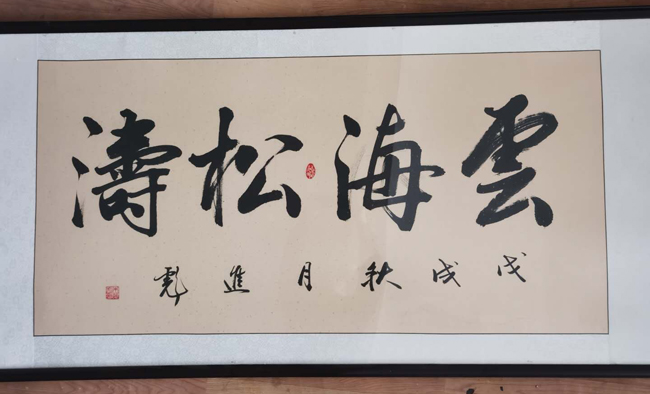 雲海松濤
戊戌秋月進彪